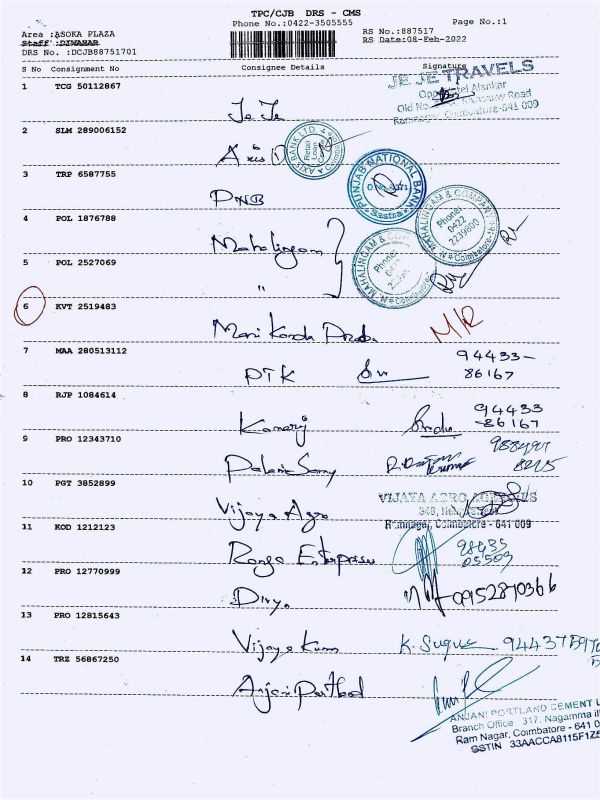 TPC/CJB DRS - CMS
Phone No.:0422-3505555
Page No.:1
Area :ASOKA PLAZA
RS No.:887517
Staff :DIWAKAR
RS Date:08-Feb-2022
DRS No. :DCJB88751701
S No Consignment No Consignee Details Signature
1 TCG 50112867
JE JE TRAVELS
Old No
Ramnagar, Coimbatore-641 009
Je Je
2 SLM 289006152
AXIS BANK LTD.
Retail Loan
Axis
3 TRP 6587755
PUNJAB NATIONAL BANK
Sastra
PNB
4 POL 1876788
MAHALINGAM & COMPANY
Phone:
0422
2239800
Coimbatore
Mahalingam
5 POL 2527069
MAHALINGAM & CO
Phone:
0422
Coimbatore
"
6 KVT 2519483
Mani Kanda Prabu
7 MAA 280513112
PTK
94433-
86167
8 RJP 1084614
Kanaraj
94433
-86167
9 PRO 12343710
10 PGT 3852899
VIJAYA AGRO AGENCIES
Ramnagar, Coimbatore - 641 009
Vijaya Agro
11 KOD 1212123
98435
05509
12 PRO 12770999
09152870366
13 PRO 12815643
Vijaya Kum
14 TRZ 56867250
Anjani Portland
ANJANI PORTLAND CEMENT L
Branch Office 317, Nagamma
Ram Nagar, Coimbatore - 641 0
GSTIN 33AACCA8115F1Z